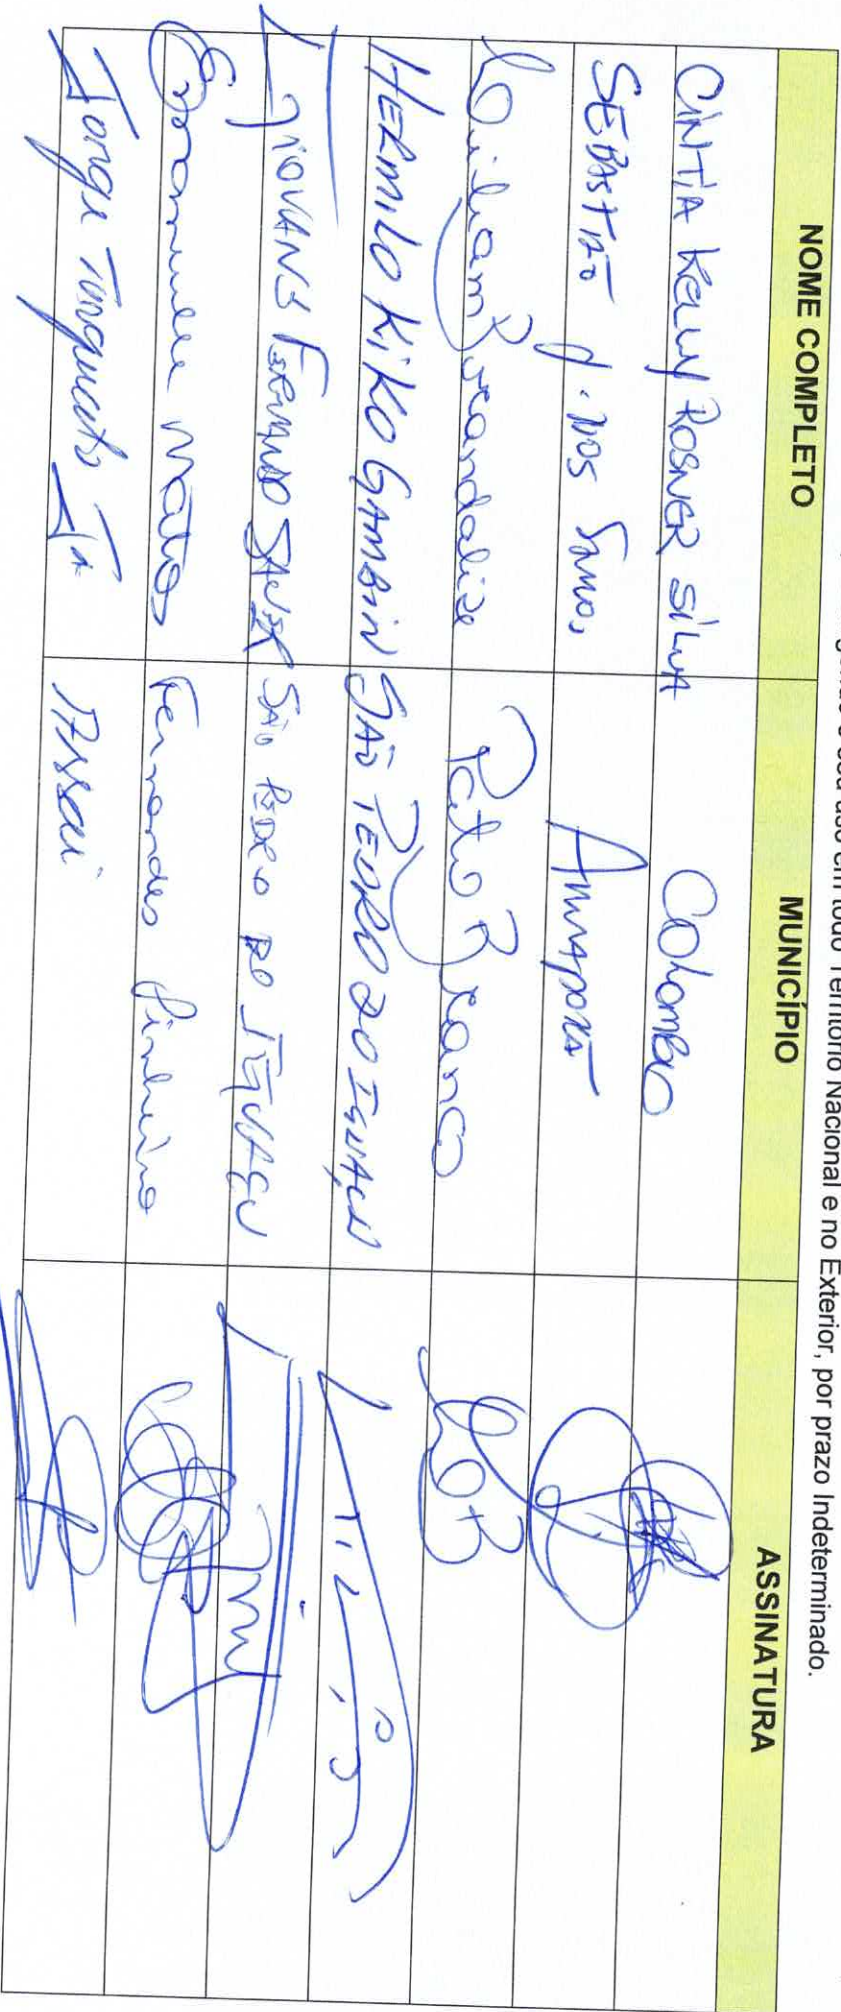 e seu uso em todo Território Nacional e no Exterior, por prazo Indeterminado.
NOME COMPLETO MUNICÍPIO ASSINATURA
CINTIA Kelly ROSNER SILVA Colombo
SEBASTIÃO
Wiliam Brandalize Pato Branco
HERMILO KIKO GAMBIN SÃO PEDRO DO IGUAÇU
GIOVANY FERNANDO SÃO PEDRO DO IGUAÇU
Emanuelle Mattos Fernandes Pinheiro
Jorge Torquato Jr Assai